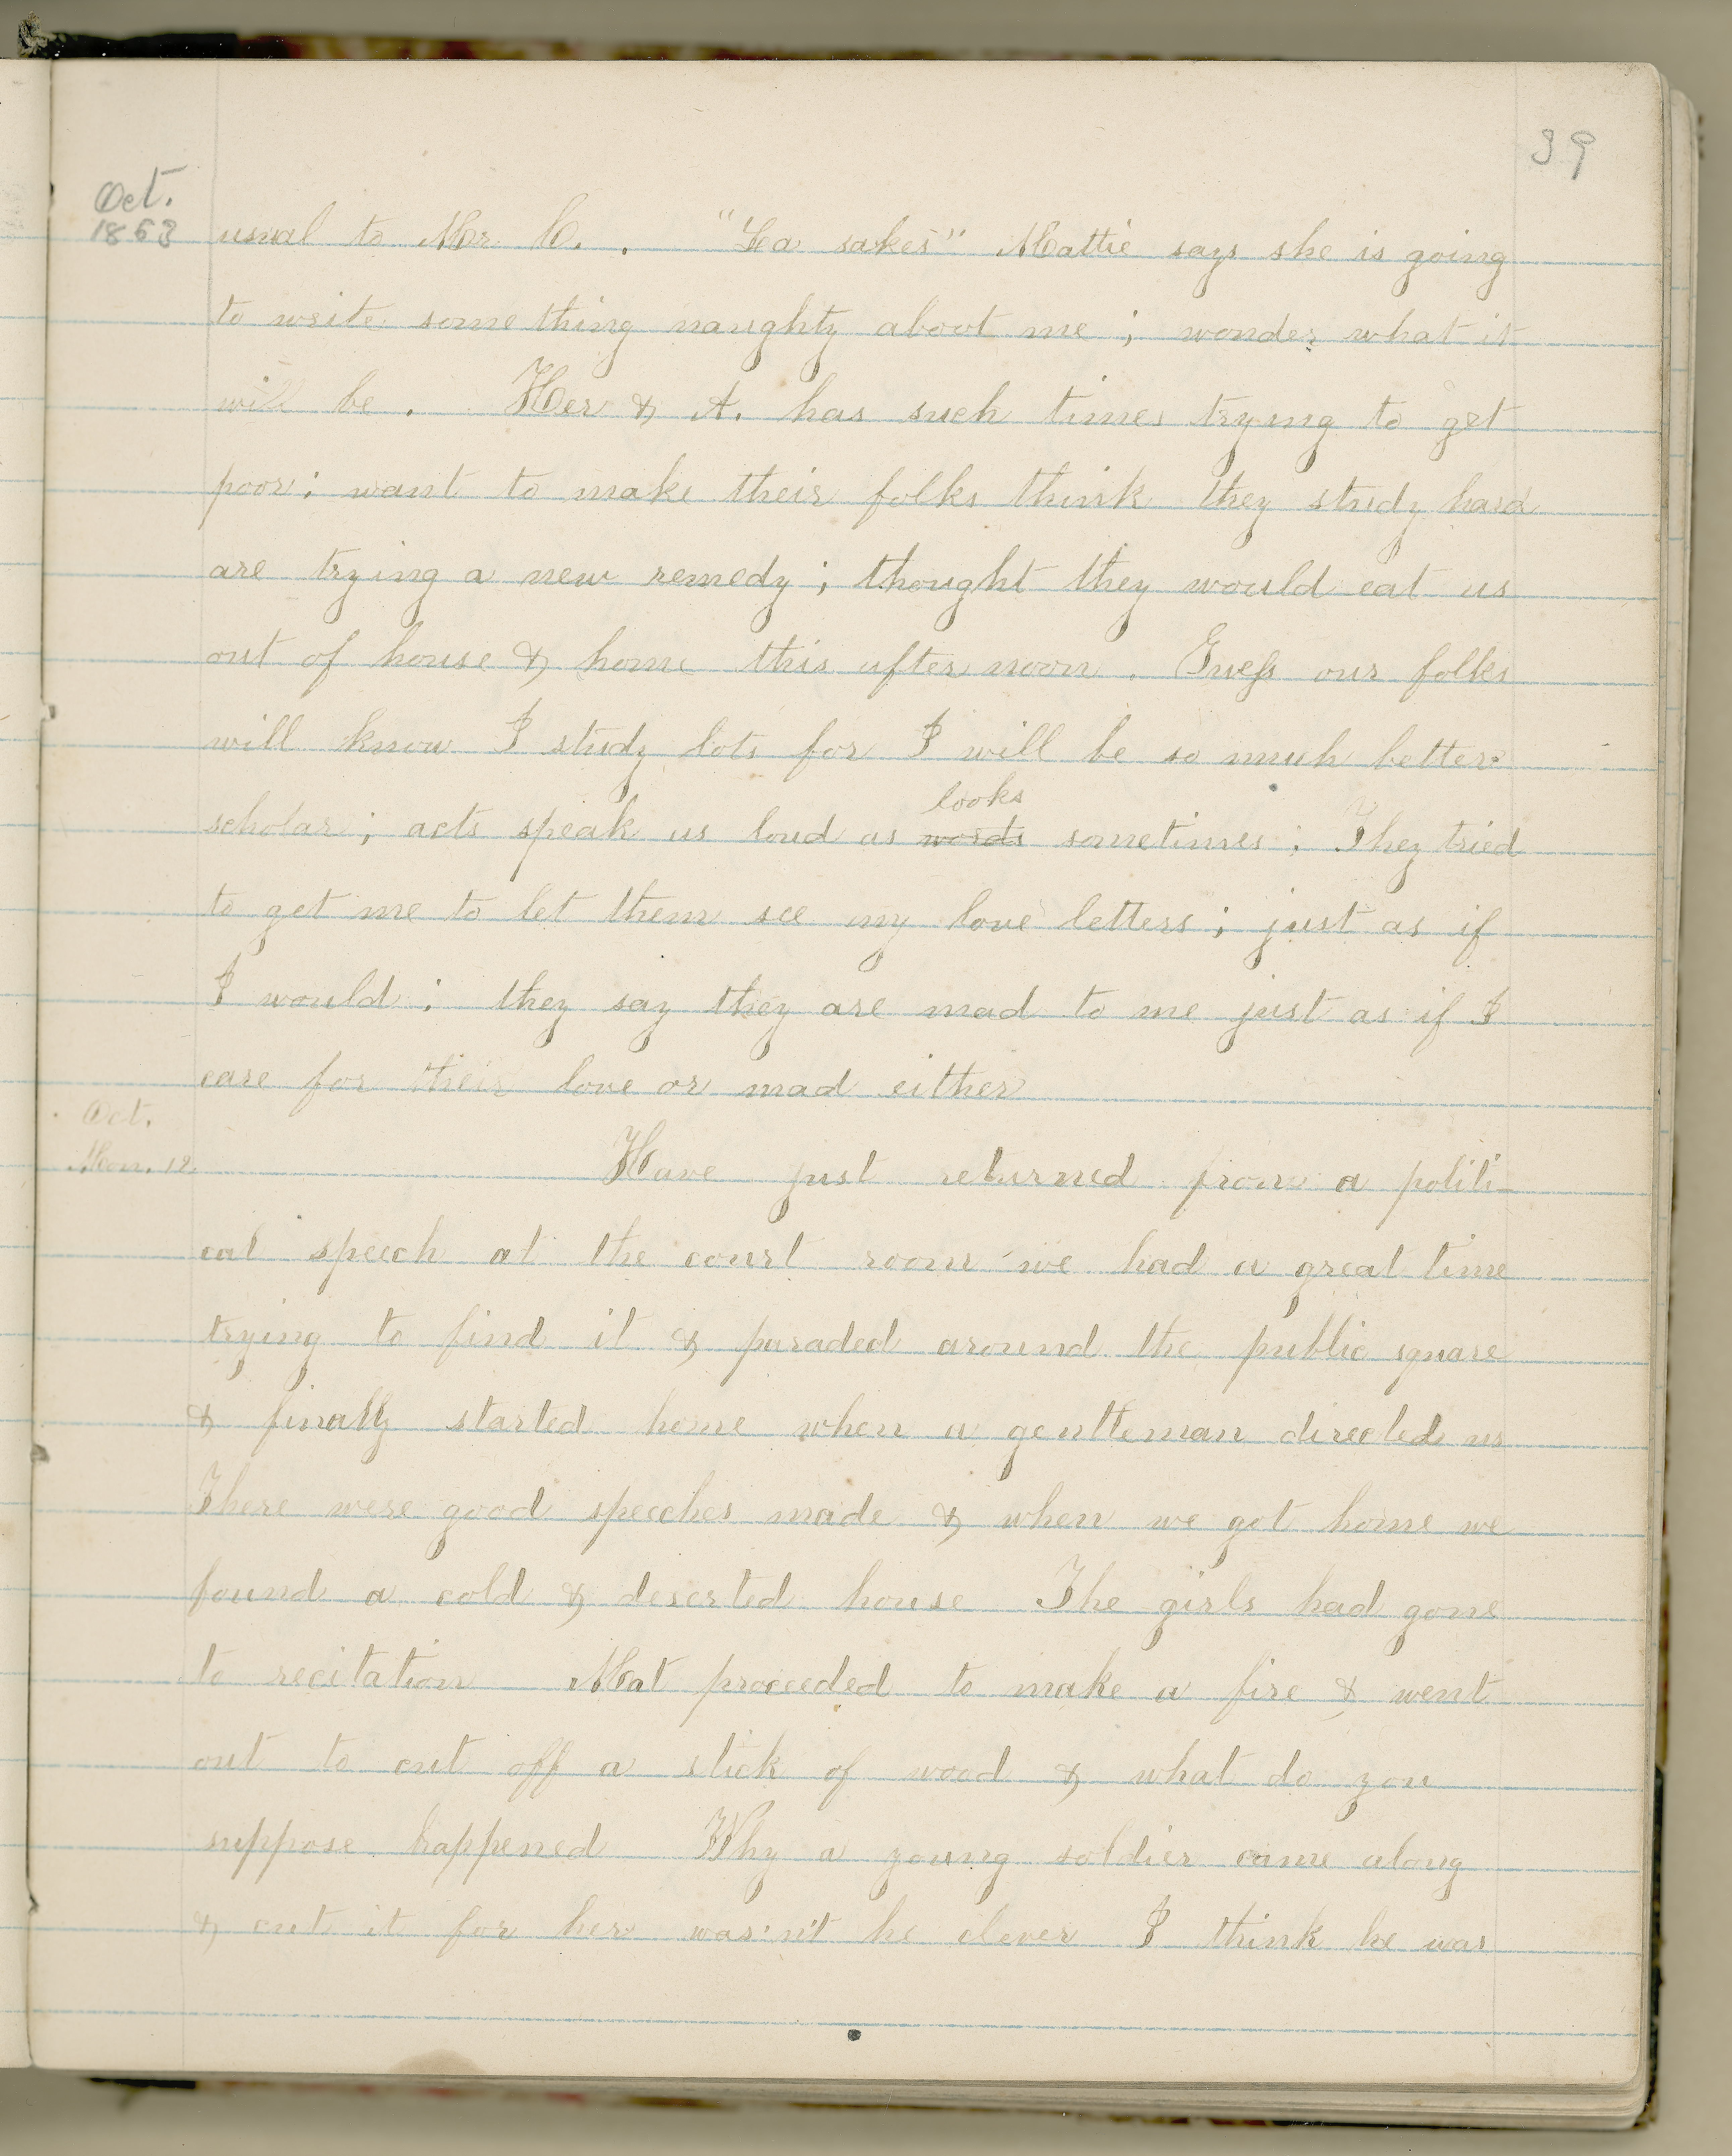 39
Oct.
1863
usual to Mr. C. . "La sakes" Mattie says she is going
to write some thing naughty about me ; wonder what it
will be . Her & A. has such times trying to get
poor ; want to make their folks think they study hard
are trying a new remedy ; thought they would eat us
out of house & home this after noon . Guess our folks
will know I study lots for I will be so much better
looks
scholar ; acts speak us loud as words sometimes ; They tried
to get me to let them see my love letters ; just as if
I would ; they say they are mad to me just as if I
care for their love or mad either
Oct.
Mon. 12.
Have just returned from a politi-
cal speech at the court room we had a great time
trying to find it & paraded around the public square
& finally started home when a gentleman directed us
There were good speeches made & when we got home we
found a cold & deserted house The girls had gone
to recitation Mat proceeded to make a fire & went
out to cut off a stick of wood & what do you
suppose happened Why a young soldier came along
& cut it for her was'n't he clever I think he was